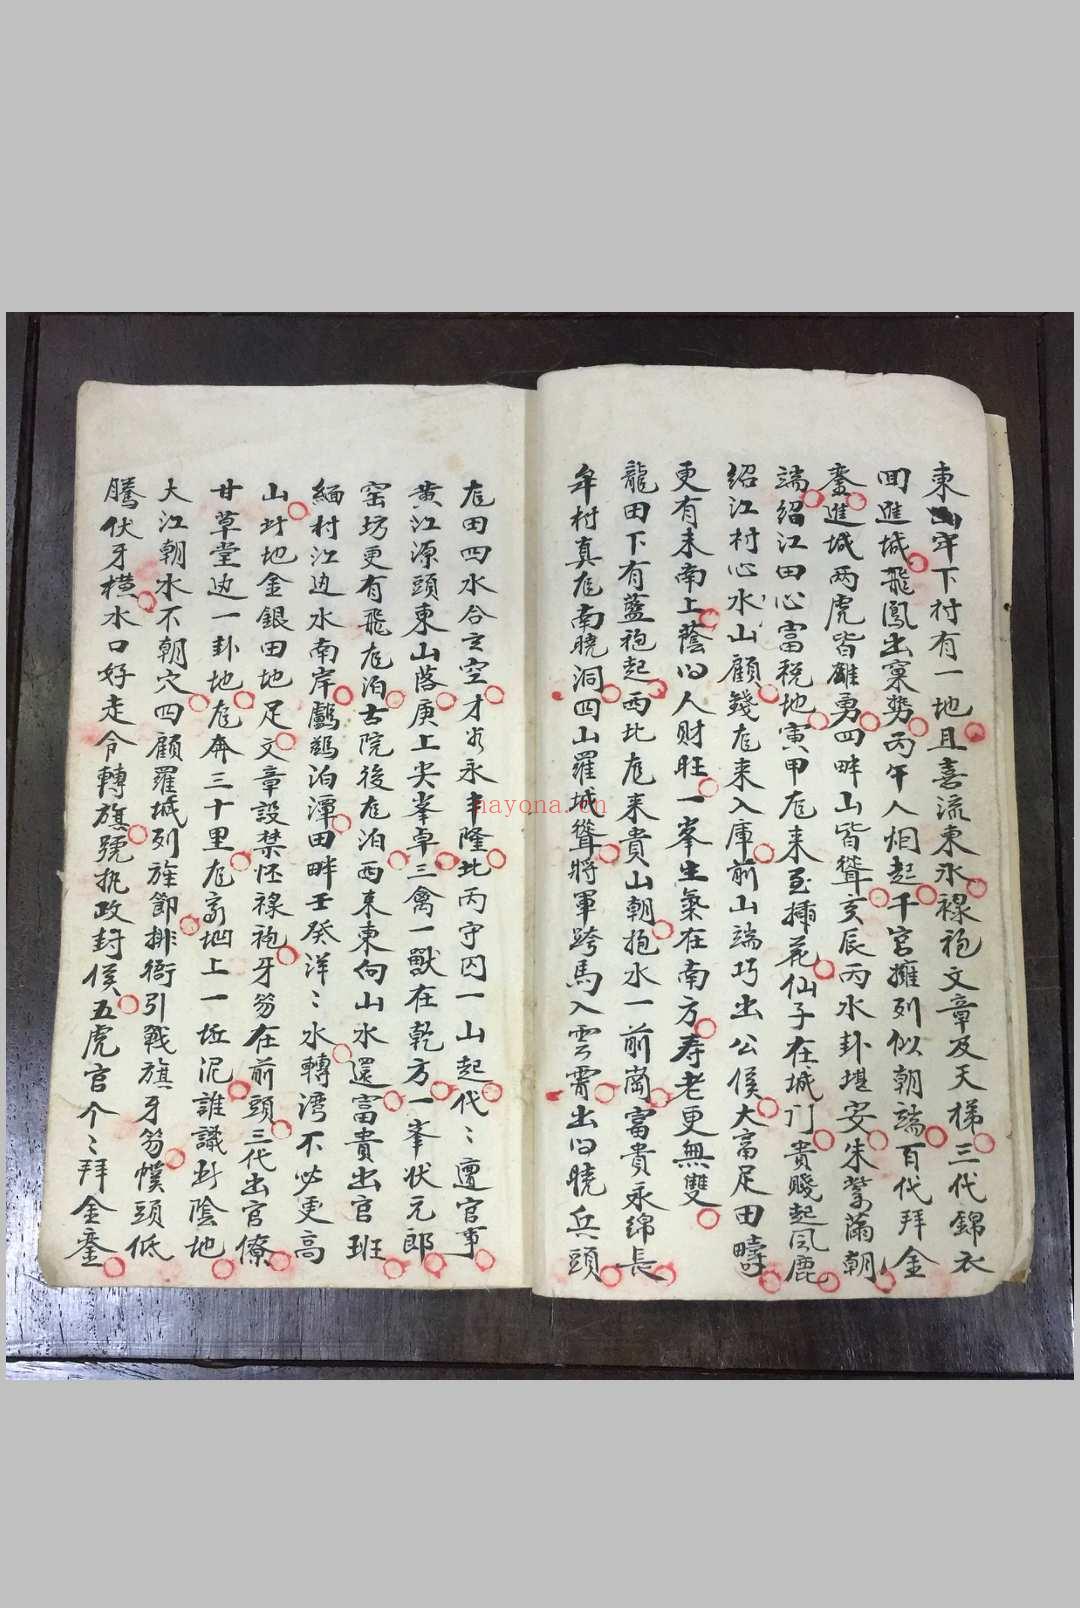 東山牢下村有一地且喜流東永祿袍文章及天梯三代錦衣
回進城飛鳳出窠勢丙午人烟起千官擁列似朝端百代拜金
鑾進城两虎皆雄勇四畔山皆聳亥辰丙水卦堪安朱紫滿朝
端紹江田心富税地寅甲龙来至挿花仙子在城门貴賤起風鹿
紹江村心水山顧錢龙来入庫前山端巧出公侯大富足田疇
更有未南上蔭的人財旺一峯生氣在南方寿老更無雙
龍田下有藍袍起西北龙来貴山朝抱水一前崗富貴永綿長
牟村真龙南曉洞四山羅城聳將軍跨馬入雲霄出的曉兵頭
龙田四水合之空才谷永丰隆北丙守囚一山起代〻遭官事
黄江源頭東山落庚上尖峯卓三禽一獸在乾方一峯状元郎
窑坊更有飛龙泊古院後龙泊西東東向山水還富貴出官班
緬村江边水南岸鸕鷀泊潭田畔壬癸洋〻水轉湾不必更高
山圤地金銀田地足文章設禁怪祿袍牙笏在前頭三代出官僚
甘草堂边一卦地龙奔三十里龙高地上一坯泥誰識圤陰地
大江朝水不朝穴四顧羅城列旌節排衙引戰旗牙笏幞頭低
騰伏牙横水口好走令轉旗號执政封侯五虎官个〻拜金鑾
nayona.cn